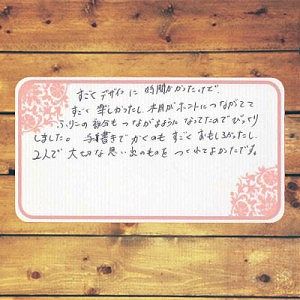 すごくデザインに時間かかったけど、
すごく楽しかったし、木目がホントにつながてて
ふしぎの 部分も つながるように なってたのでびっくり
しました。 手書きで かくのも すごく おもしろかったし、
2人で 大切な思い出のものを つくれてよかったです。